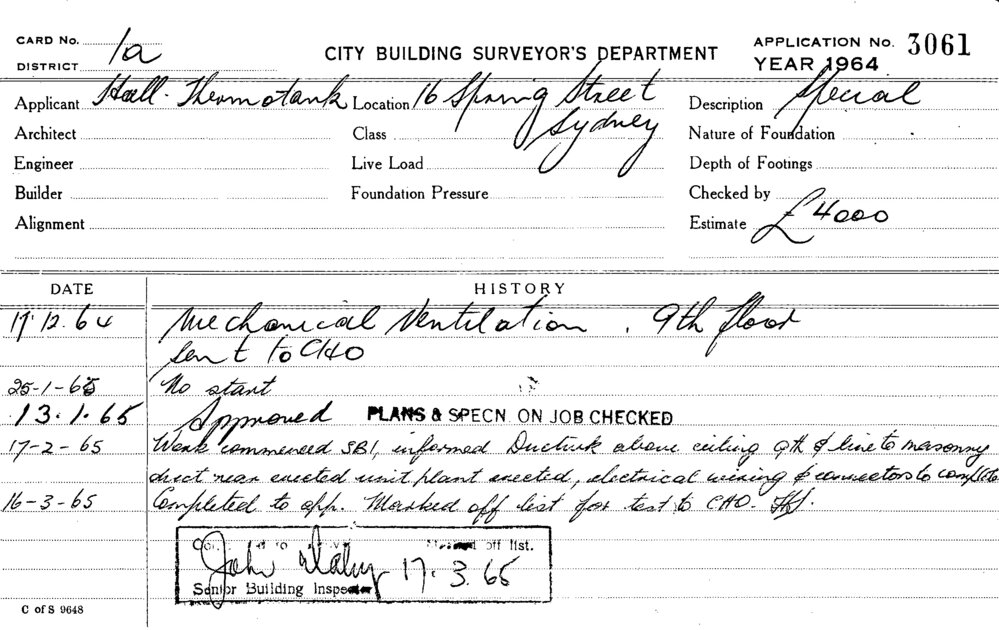 CARD No. 1a
DISTRICT
CITY BUILDING SURVEYOR'S DEPARTMENT
APPLICATION No. 3061
YEAR 1964
Applicant Hall-Thermotank Location 16 Spring Street Sydney Description Special
Architect Class Nature of Foundation
Engineer Live Load Depth of Footings
Builder Foundation Pressure Checked by
Alignment Estimate £4000
DATE HISTORY
17.12.64 Mechanical Ventilation, 9th floor
sent to CHO
25-1-65 No start
13.1.65 Approved PLANS & SPECN. ON JOB CHECKED
17-2-65 Work commenced SBI, informed Ductwk above ceiling 9th & line to masonry
duct near erected unit plant erected, electrical wiring & connectors to complete
16-3-65 Completed to app. Marked off list for test to CHO.
to off list.
John 17.3.65
Senior Building Inspector
C of S 9648